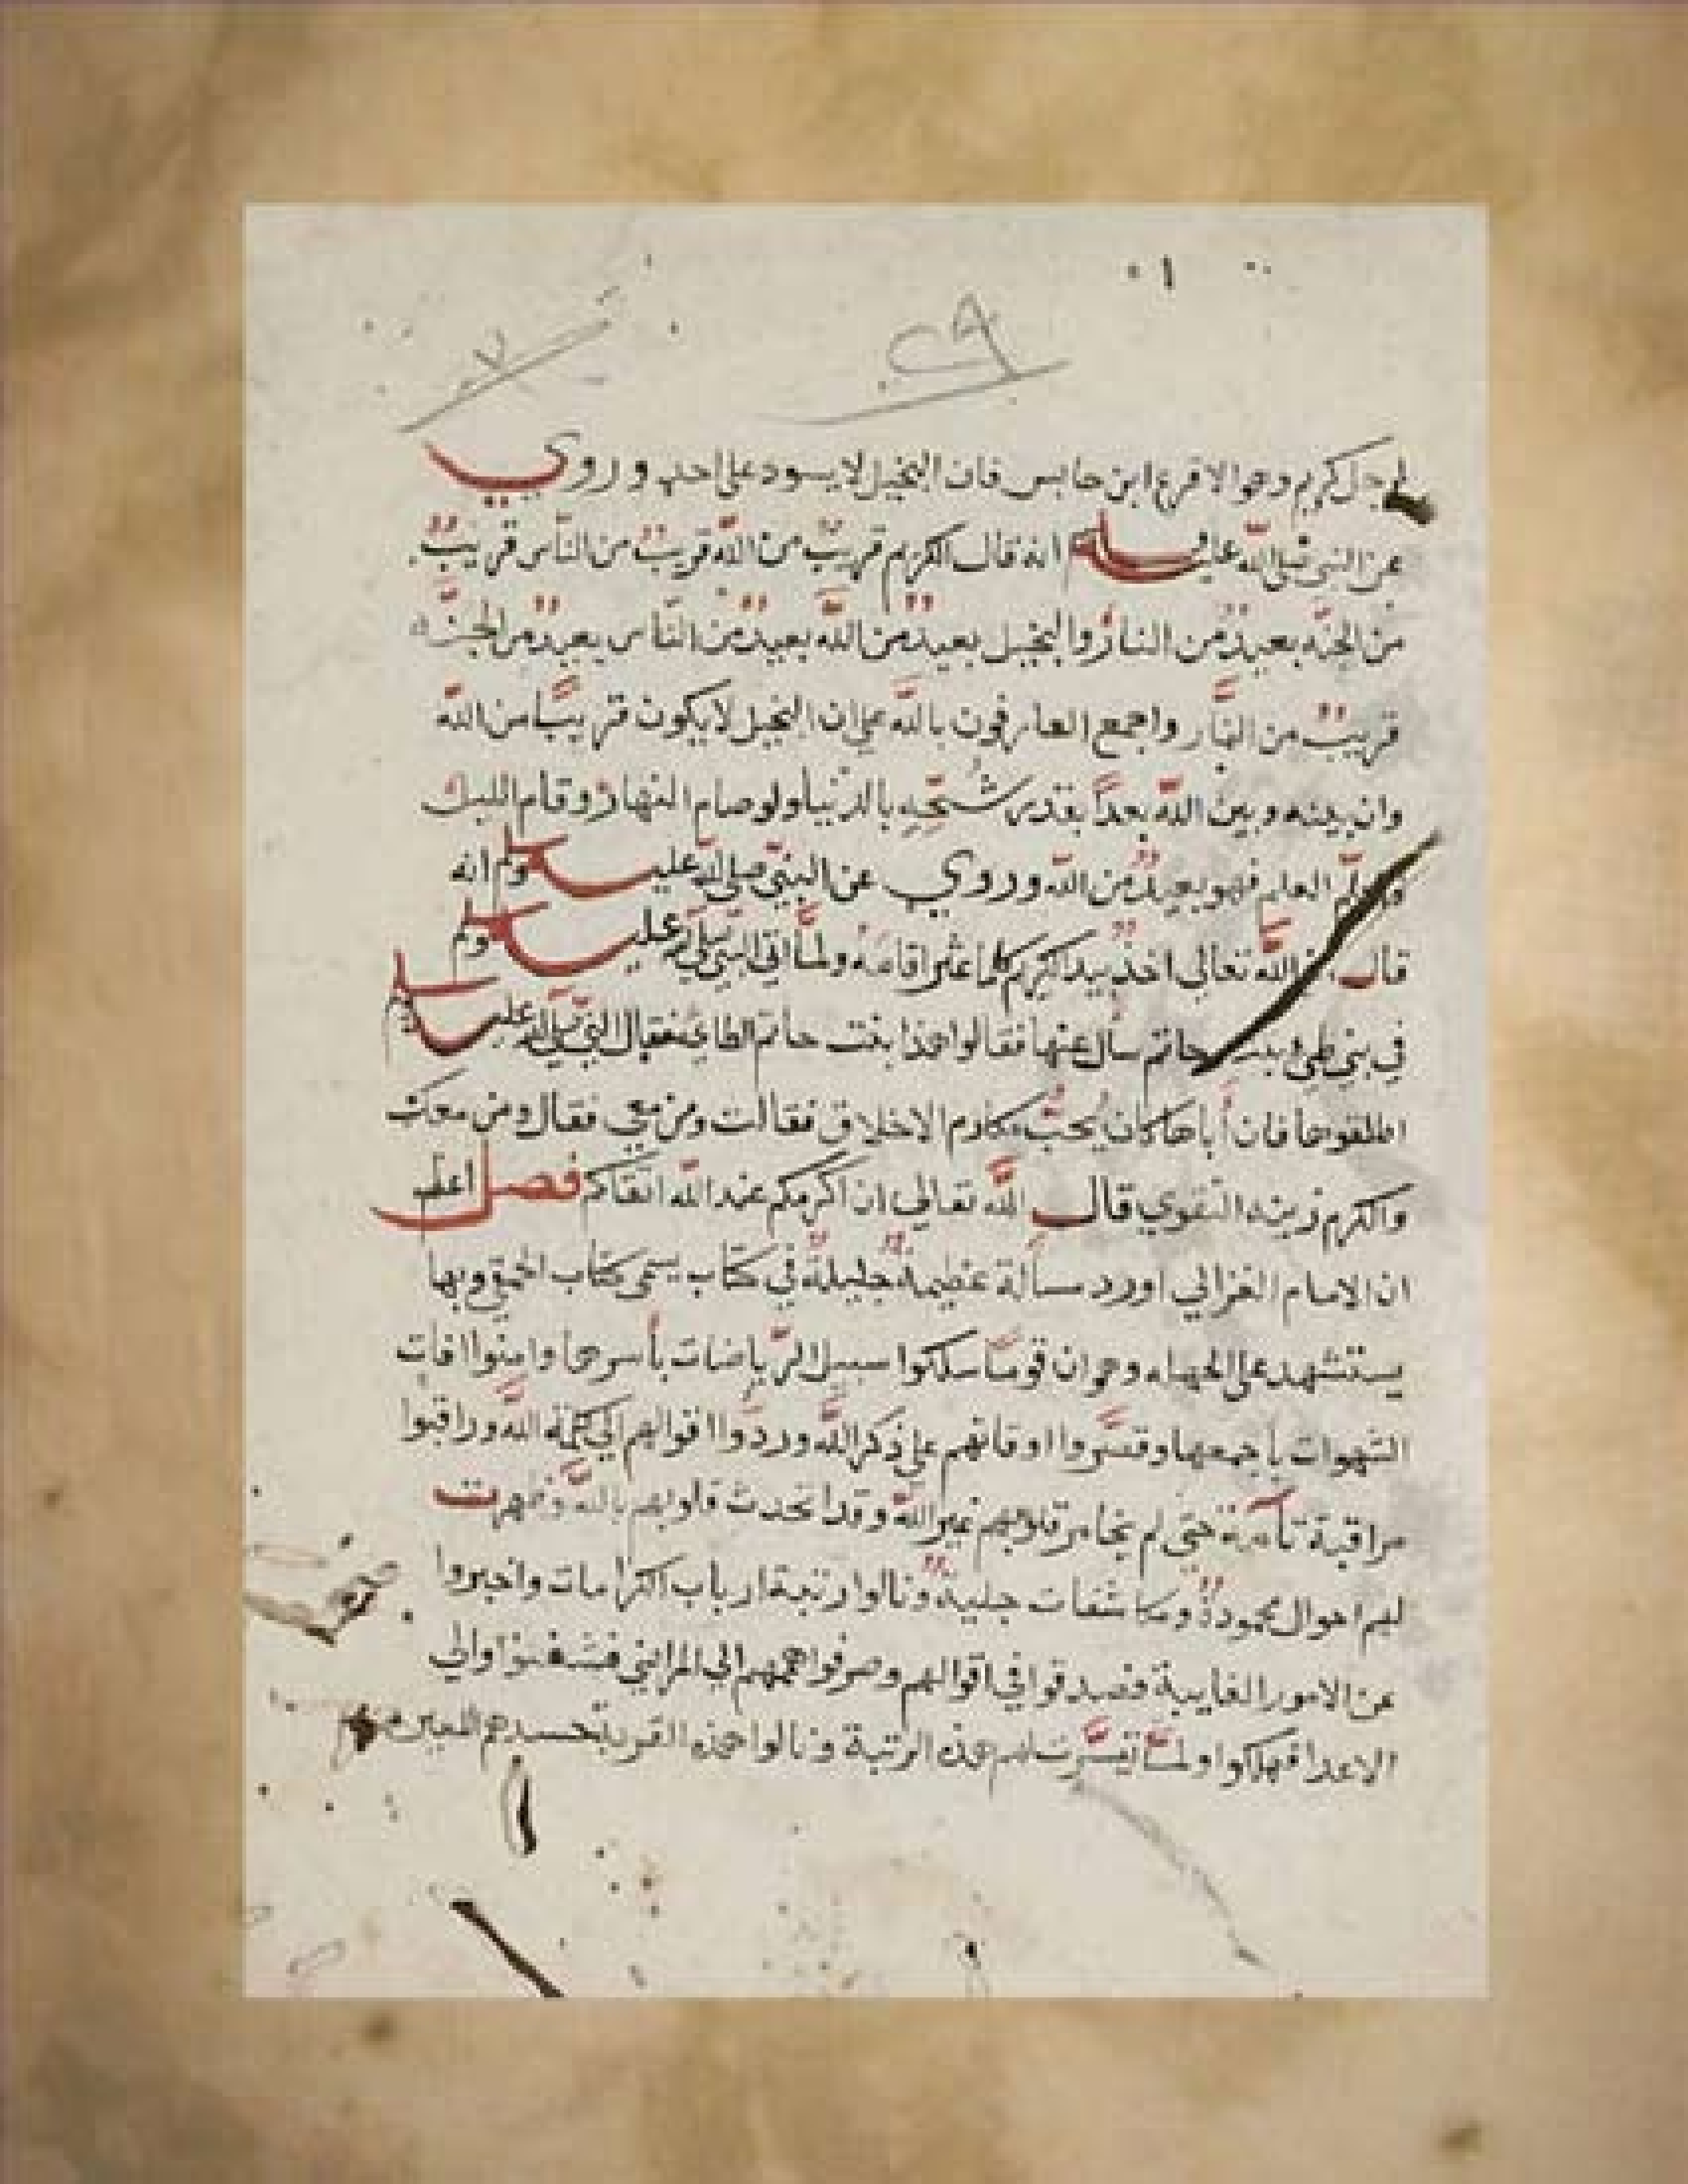 ٢٩
لرجل كريم وهو الاقرع ابن حابس فان البخيل لا يسود على احد وروي
عن النبي صلى الله عليه وسلم انه قال الكريم قريبٌ من الله قريبٌ من الناس قريبٌ
من الجنه بعيدٌ من النار والبخيل بعيدٌ من الله بعيدٌ من النَّاس بعيدٌ من الجنه
قريبٌ من النَّار واجمع العارفون بالله على ان البخيل لا يكون قريبًا من الله
وان بينه وبين الله بعدًا بقدر شُحِّهِ بالدنيا ولو صام النهار وقام الليل
وعلّم العلم فهو بعيدٌ من الله وروي عن النبي صلى الله عليه وسلم انه
قال الله تعالى اخذٌ بيد الكريم كلما عثر اقامه ولمَّا اتى النبي صلى الله عليه وسلم
في بني طي وبيت حاتم سأل عنها فقالوا هذا بنت حاتم الطائي فقال النبي صلى الله عليه وسلم
اطلقوها فان أباها كان يُحبُّ مكارم الاخلاق فقالت ومن معي فقال ومن معك
والكرم زينه التقوي قال الله تعالي ان اكرمكم عند الله اتقاكم فصل اعلم
ان الامام الغزالي اورد مسألة عظيمةٌ جليلةٌ في كتاب يسمى كتاب وبها
يستشهد على وهو ان قومًا سلكوا سبيل الرِّياضات بأسرها وامنوا افات
الشهوات باجمعها وقسَّروا اوقاتهم على ذكر الله وردوا اقوالهم الي كلمة الله وراقبوا
مراقبة تآمة حتي لم يخامر قلوبهم غير الله وقد اتحدت قلوبهم بالله وظهرت
لهم احوال محمودةٌ ومكاشفات جليةٌ ونالوا رتبة ارباب الكرامات واخبروا
عن الامور الغايبة فصدقوا في اقوالهم وصرفوا هممهم الي المراضي والي
الاعدا فهلكوا ولمَّا تيسَّرت لهم هذه الرتبة ونالوا هذه القربة حسدهم